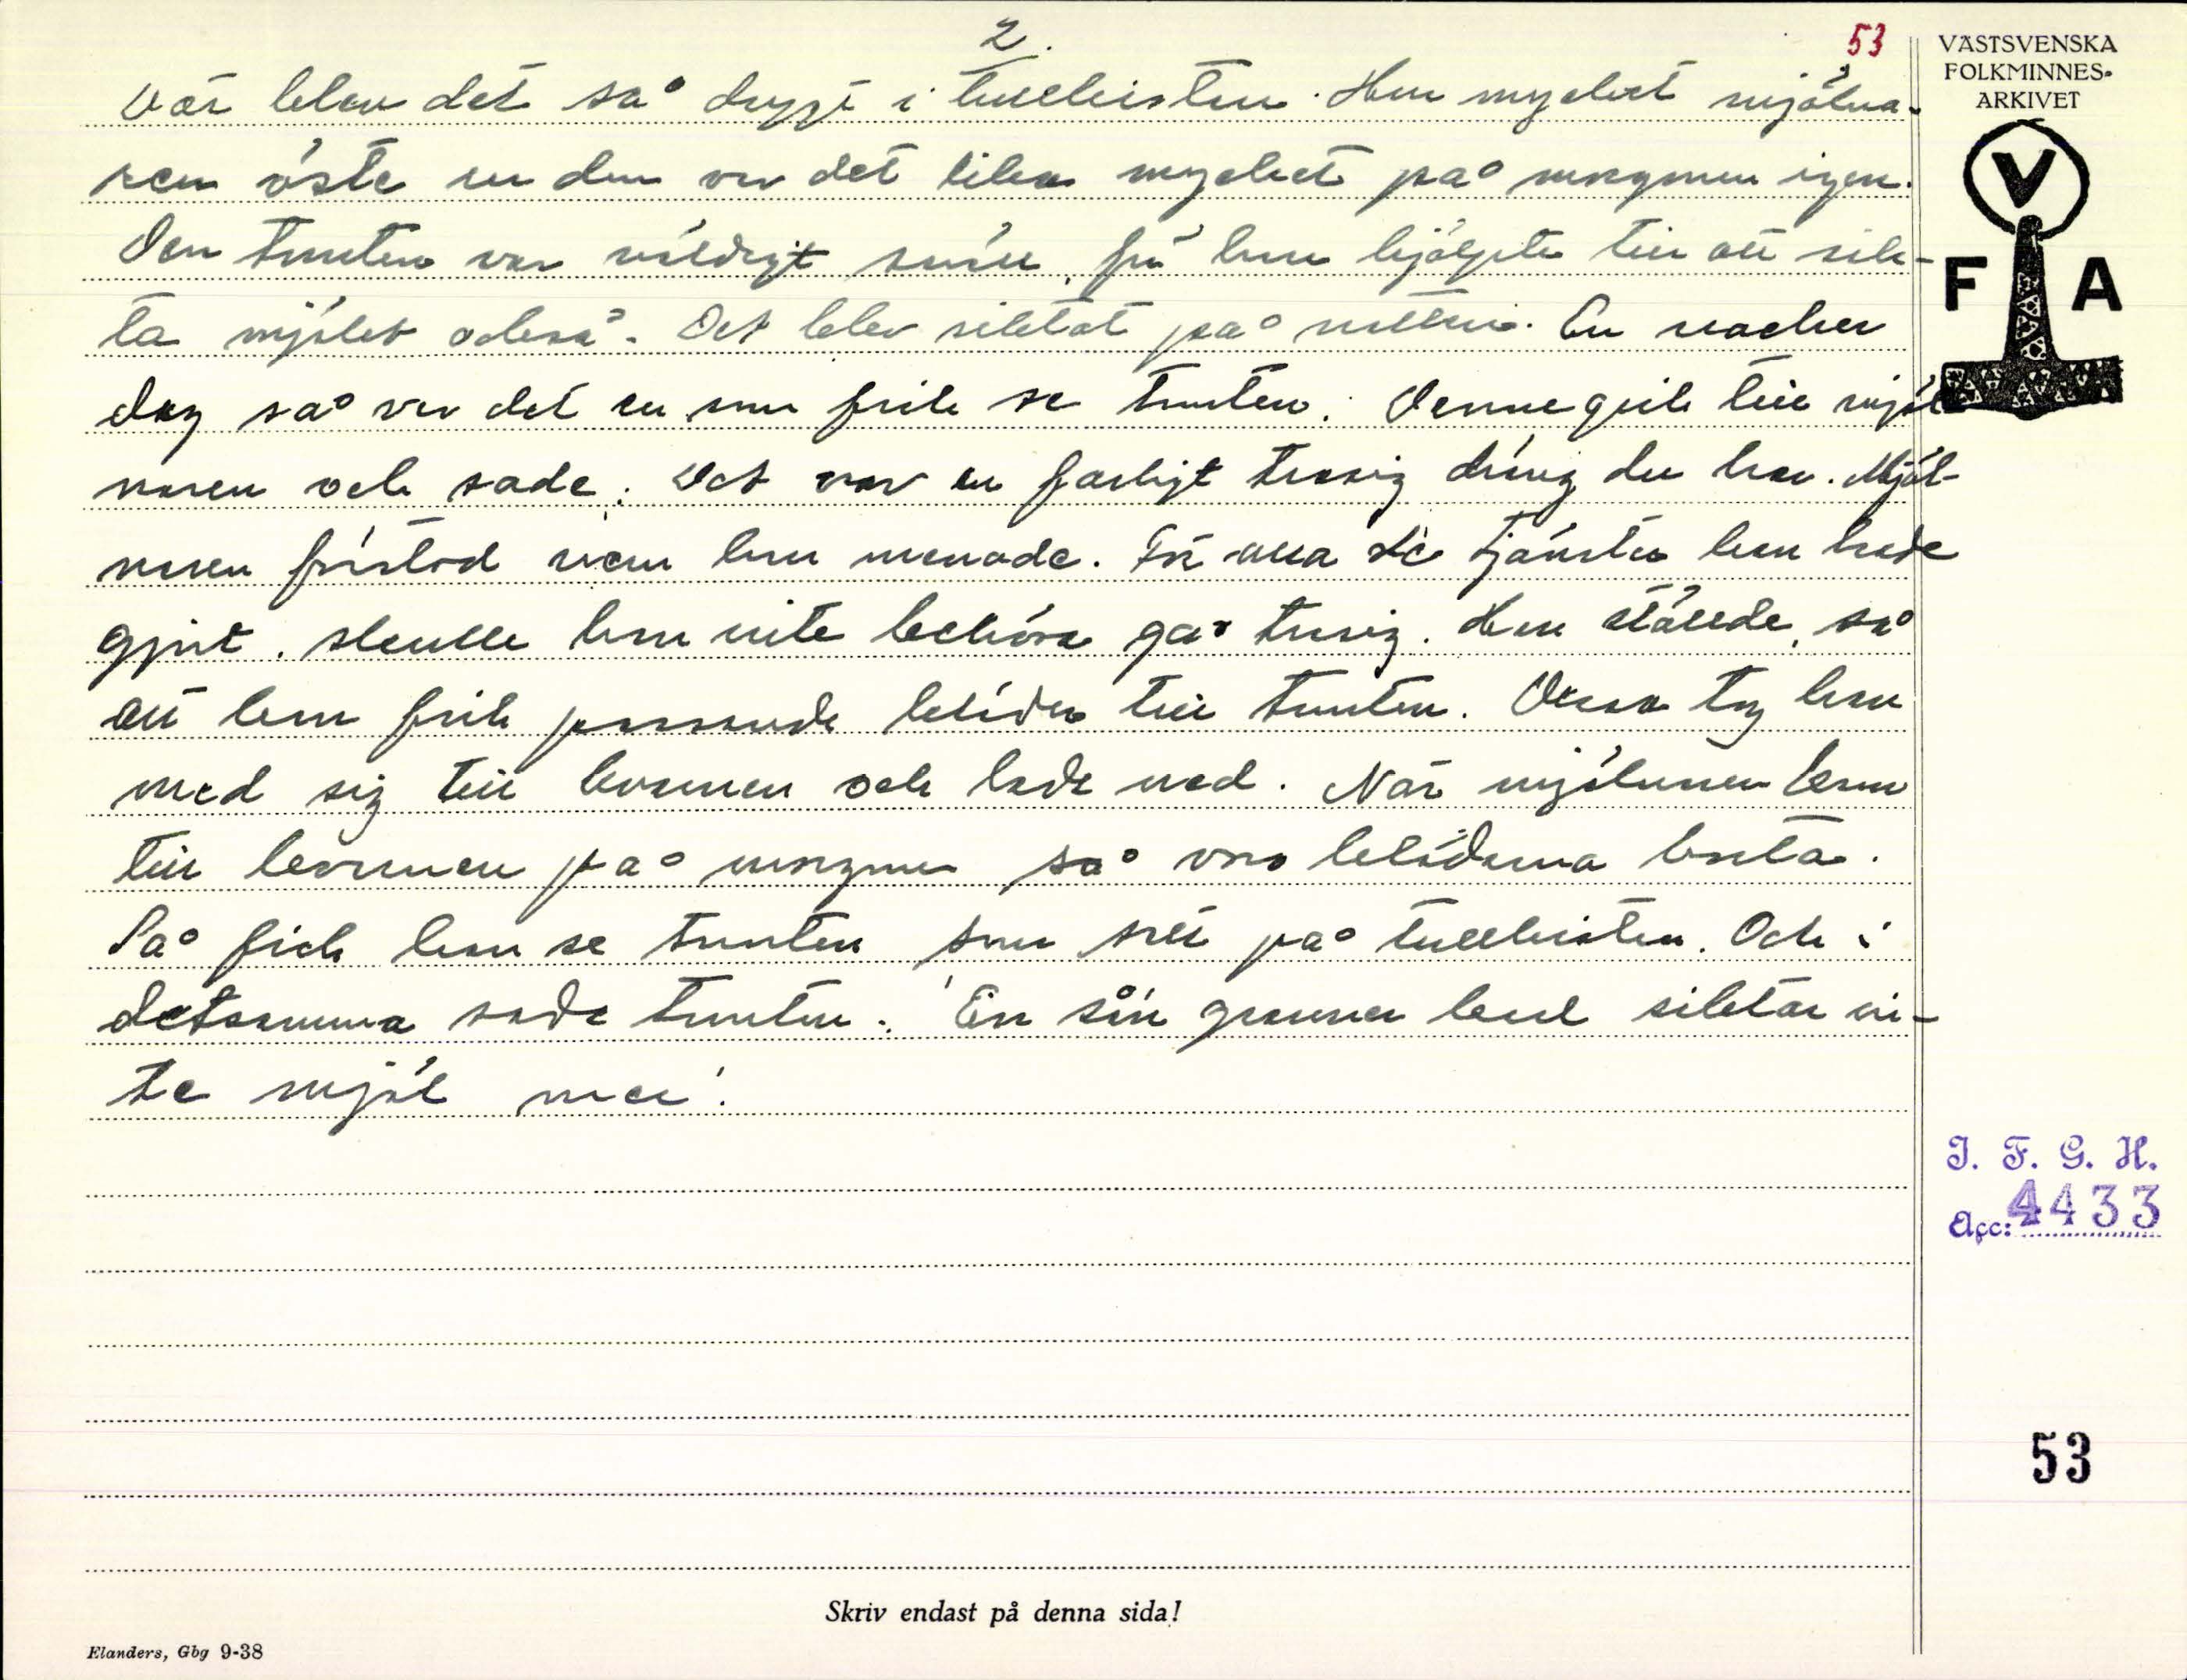 2.
53
VÄSTSVENSKA
FOLKMINNES-
ARKIVET
V
F A
där blev det så drygt i tullkistan. Hur mycket mjölna-
ren öste ur den var det lika mycket på morgonen igen.
Den tomten var väldigt snäll, för han hjälpte till att sik-
ta mjölet också. Det blev siktat på natten. En vacker
dag så var det en som fick se tomten. Denne gick till mjöl
naren och sade: Det var en farligt trasig dräng du har. Mjöl-
naren förstod vem han menade. För alla de tjänster han hade
gjort, skulle han inte behöva gå trasig. Han ställde, så
att han fick passande kläder till tomten. Dessa tog han
med sig till kvarnen och lade ned. När mjölnaren kom
till kvarnen på morgonen så voro kläderna borta.
Så fick han se tomten som satt på tullkistan. Och i
detsamma sade tomten: 'En sån granner karl siktar in-
te mjöl mer'.
I. F. G. H.
Acc: 4433
53
Skriv endast på denna sida!
Elanders, Gbg 9-38